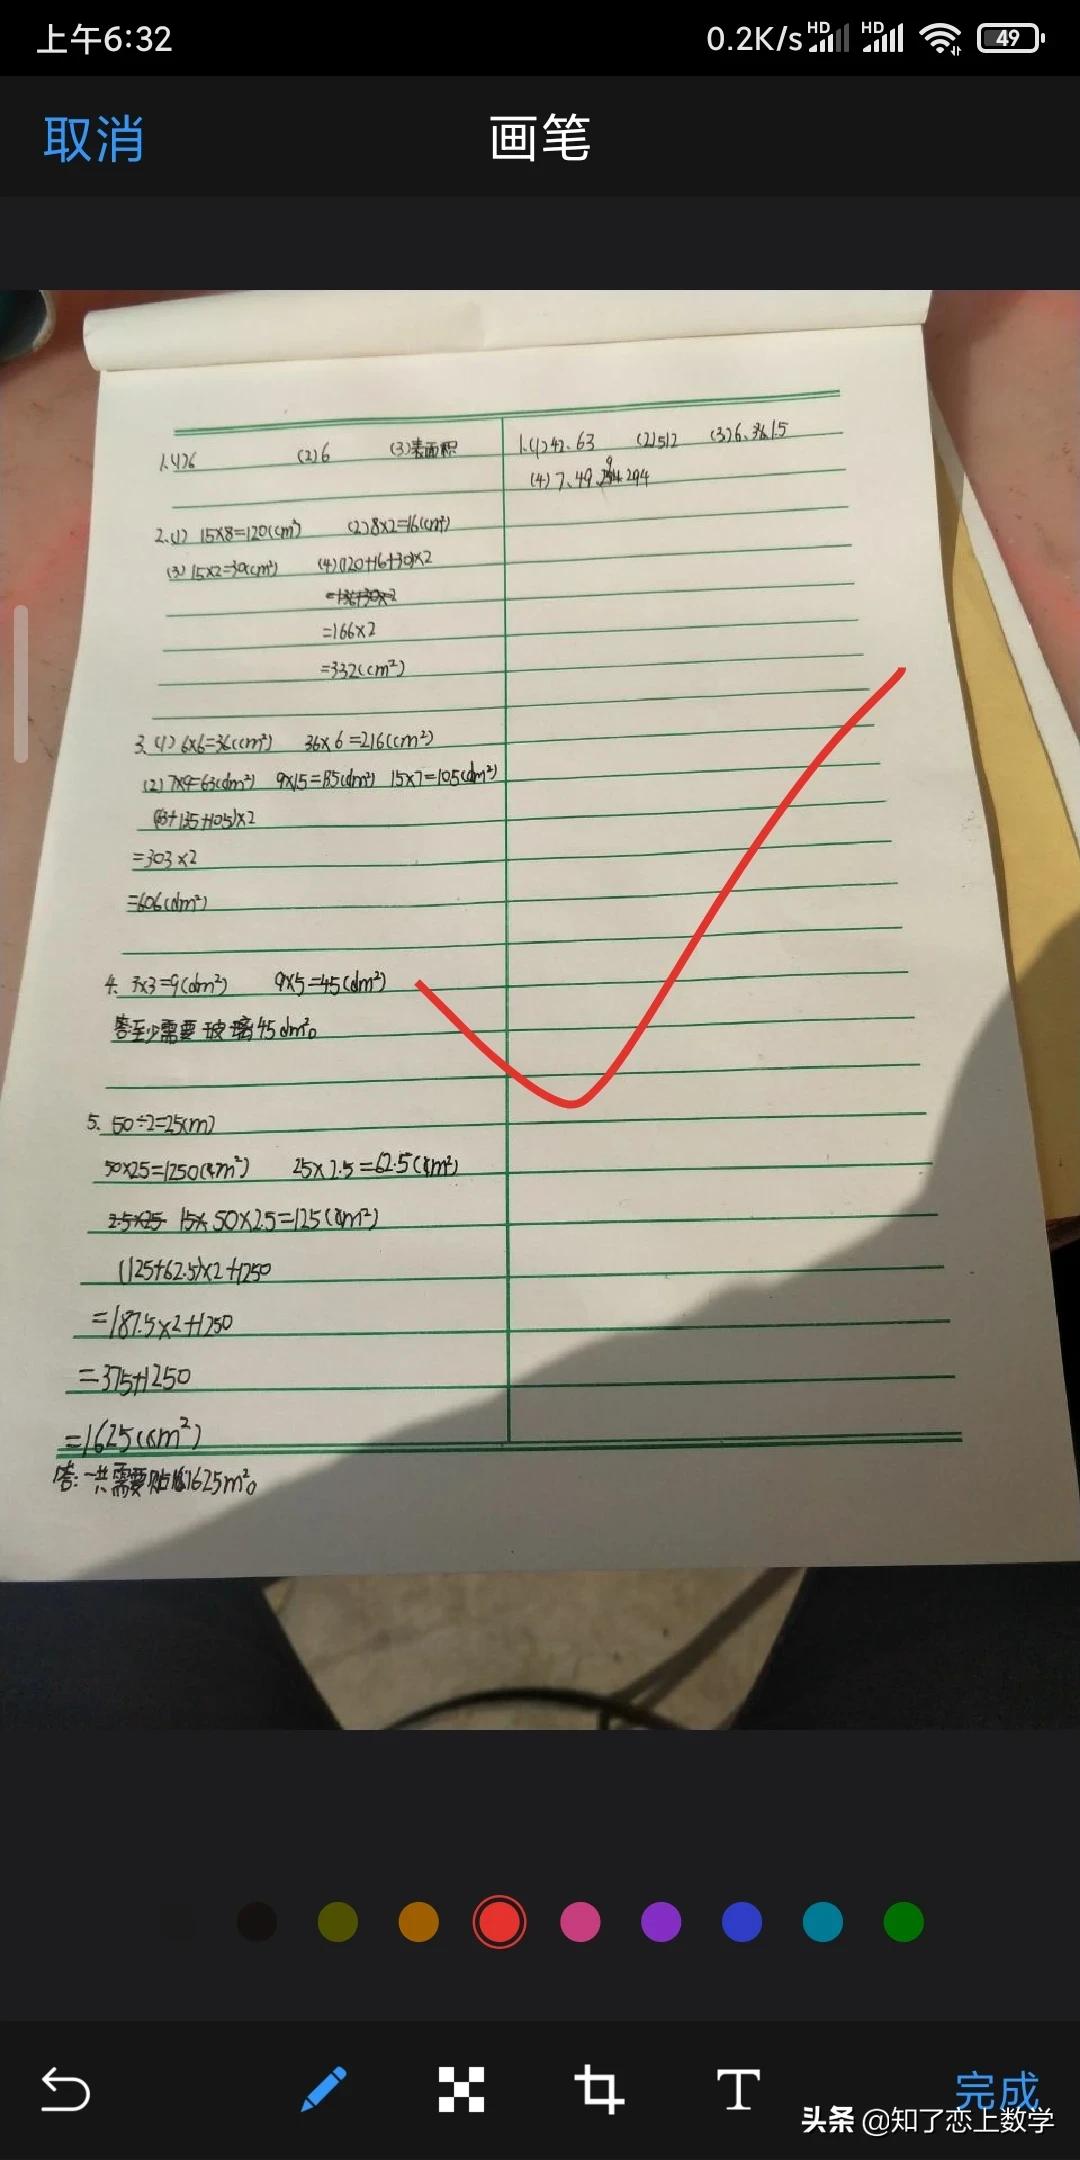 上午6:32 0.2K/s HD HD 49
取消 画笔
1.(1)6 (2)6 (3)表面积
2.(1) 15×8=120(cm²) (2)8×2=16(cm²)
(3) 15×2=30(cm²) (4)(120+16+30)×2
=166×2
=332(cm²)
3.(1) 6×6=36(cm²) 36×6=216(cm²)
(2) 7×9=63(dm²) 9×15=135(dm²) 15×7=105(dm²)
(63+135+105)×2
=303×2
=606(dm²)
4. 3×3=9(dm²) 9×5=45(dm²)
答:至少需要玻璃45dm²。
5. 50÷2=25(m)
50×25=1250(m²) 25×2.5=62.5(m²)
50×2.5=125(m²)
(125+62.5)×2+1250
=187.5×2+1250
=375+1250
=1625(m²)
答:一共需要贴1625m²。
1.(1)42、63 (2)512 (3)6、36、1.5
(4)7、49、294
完成
头条 @知了恋上数学